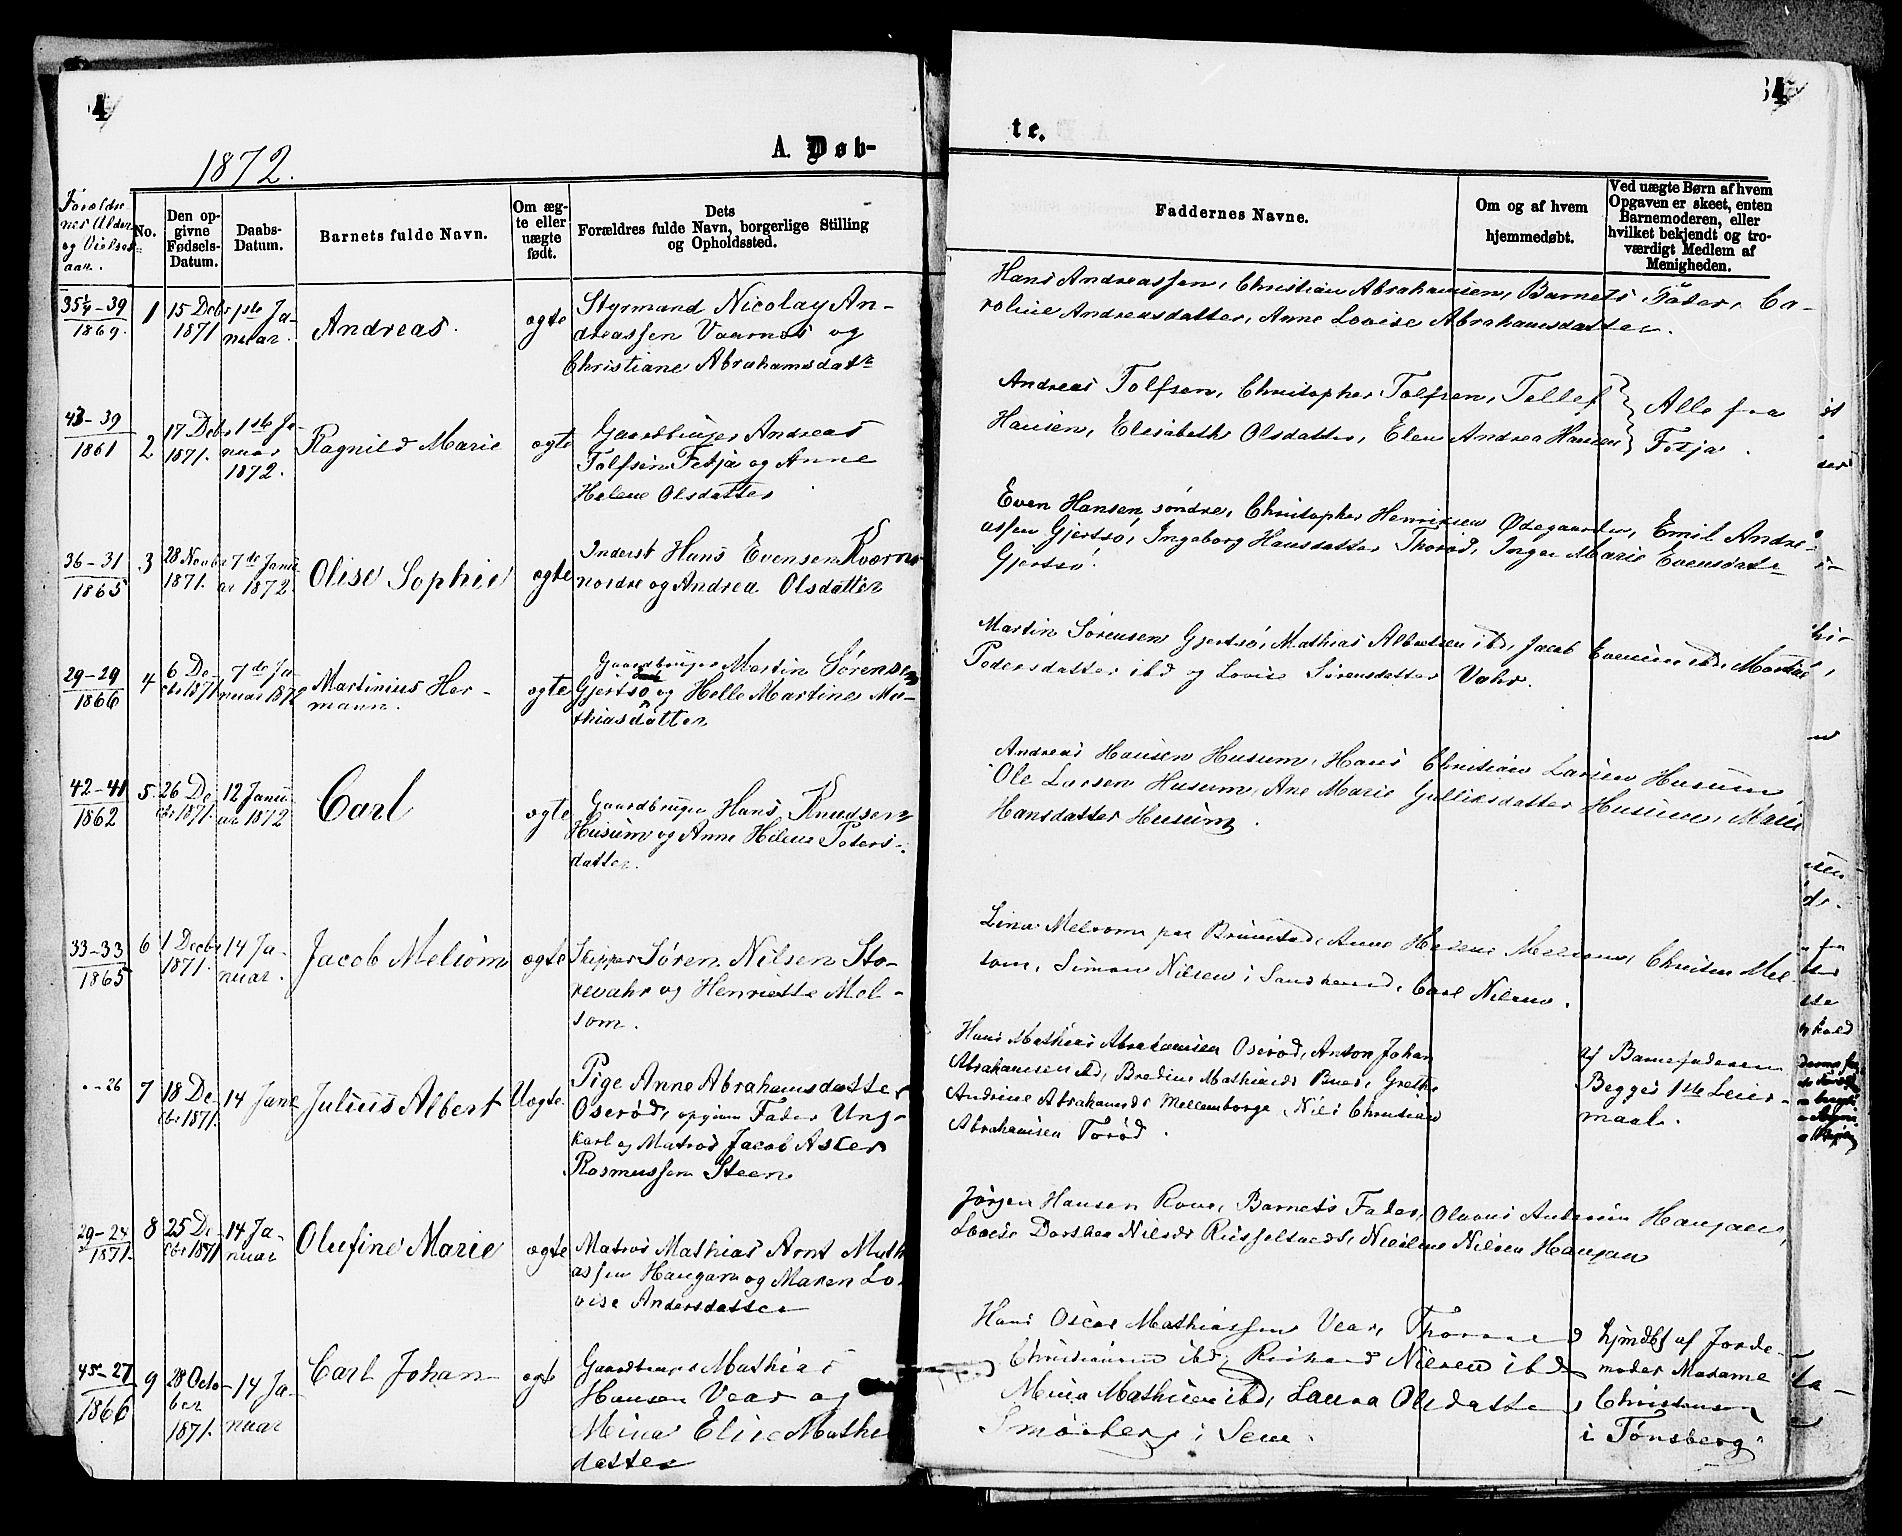 4
1872.
A. Døb-
Forældre
nes Alder
og Vielses
aar.
No.
Den op-
givne
Fødsels-
Datum.
Daabs-
Datum.
Barnets fulde Navn.
Om æg-
te eller
uægte
født.
Dets
Forældres fulde Navn, borgerlige Stilling
og Opholdssted.
35¼-39
1869.
1
15 Debr
1871
1ste Ja-
nuar.
Andreas.
ægte
Styrmand Nicolay An-
dreassen Vaarnes og
Christiane Abrahamsdatr
43-39
1861
2
17 Debr
1871.
1ste Ja-
nuar
1872.
Ragnild Marie
ægte
Gaardbruger Andreas
Tolfsen Fetja og Anne
Helene Olsdatter
36-31
1865
3
28 Novbr
1871.
7de Janu
ar 1872.
Olise Sophie
ægte
Inderst Hans Evensen Kværne
nordre og Andrea Olsdatter
29-29
1866
4
6 De-
cbr 1871
7de Ja-
nuar 1872
Martinius Her-
mann.
ægte
Gaardbruger Martin Sørensen
Gjertsø og Helle Martine Ma-
thiasdatter
42-41
1862
5
26 De
cbr 1871.
12 Janu
ar 1872
Carl
ægte
Gaardbruger Hans Knudsen
Husum og Anne Helene Peters-
datter.
33-33
1865
6
1 Decbr
1871.
14 Ja-
nuar.
Jacob Melsom
ægte
Skipper Søren Nilsen Sto-
revahr og Henriette Mel-
som.
"-26
7
18 De-
cbr 1871.
14 Janr
Julius Albert
Uægte.
Pige Anne Abrahamsdatter
Oserød, opgiven Fader Ung-
karl og Matros Jacob Aster
Rasmussen Steen
29-24
1871.
8
25 De
cbr 1871
14 Ja-
nuar
Olufine Marie
ægte
Matros Mathias Arnt Math
assen Haugan og Maren Lo-
vise Andersdatter
45-27
1866
9
28 Octo-
ber
1871.
14 Ja-
nuar
Carl Johan
ægte
Gaardbruger Mathias
Hansen Vear og
Mina Elise Mathi
datter
4
te.
Faddernes Navne.
Om og af hvem
hjemmedøbt.
Ved uægte Børn af hvem
Opgaven er skeet, enten
Barnemoderen, eller
hvilket bekjendt og tro-
værdigt Medlem af
Menigheden.
Hans Andreassen, Christian Abrahamsen, Barnets Fader, Ca-
roline Andreasdatter, Anne Lovise Abrahamsdatter.
Andreas Tolfsen, Christopher Tolfsen, Tellef
Hansen, Elisabeth Olsdatter, Elen Andrea Hansen
Alle fra
Fetja.
Even Hansen søndre, Christopher Henriksen Ødegaarden, Emil Andre-
assen Gjertsø, Ingeborg Hansdatter Thorød, Inger Marie Evensdatr
Gjertsø.
Martin Sørensen Gjertsø, Mathias Albretsen ibd, Jacob Evensen ibd, Martine
Pedersdatter ibd og Lovise Sørensdatter Vahr.
Andreas Hansen Husum, Hans Christian Larsen Husum,
Ole Larsen Husum, Ane Marie Gulliksdatter Husum, Marie
Hansdatter Husum.
Lina Melsom paa Brunstad, Anne Helene Melsom, Christen Mel
som, Simon Nilsen i Sandherred, Carl Nilsen.
Hans Mathias Abrahamsen Oserød, Anton Johan
Abrahamsen ibd, Bredine Mathiasdr Buer, Grethe
Andrine Abrahamsdr Mellemborge, Nils Christian
Abrahamsen Torød.
af Barnefaderen
Begges 1ste Leier-
maal.
Jørgen Hansen Rove, Barnets Fader, Olavus Andersen Haugan,
Lovise Dorthea Nilsdr Russeltvedt, Nicoline Nilsen Haugan
Hans Oscar Mathiassen Vear, Thorvald
Christiansen ibd, Richard Nilsen ibd
Mina Mathisen ibd, Laura Olsdatter
Smørberg i Sem.
hjmdbt af Jorde-
moder Madame
Christensen
i Tønsberg